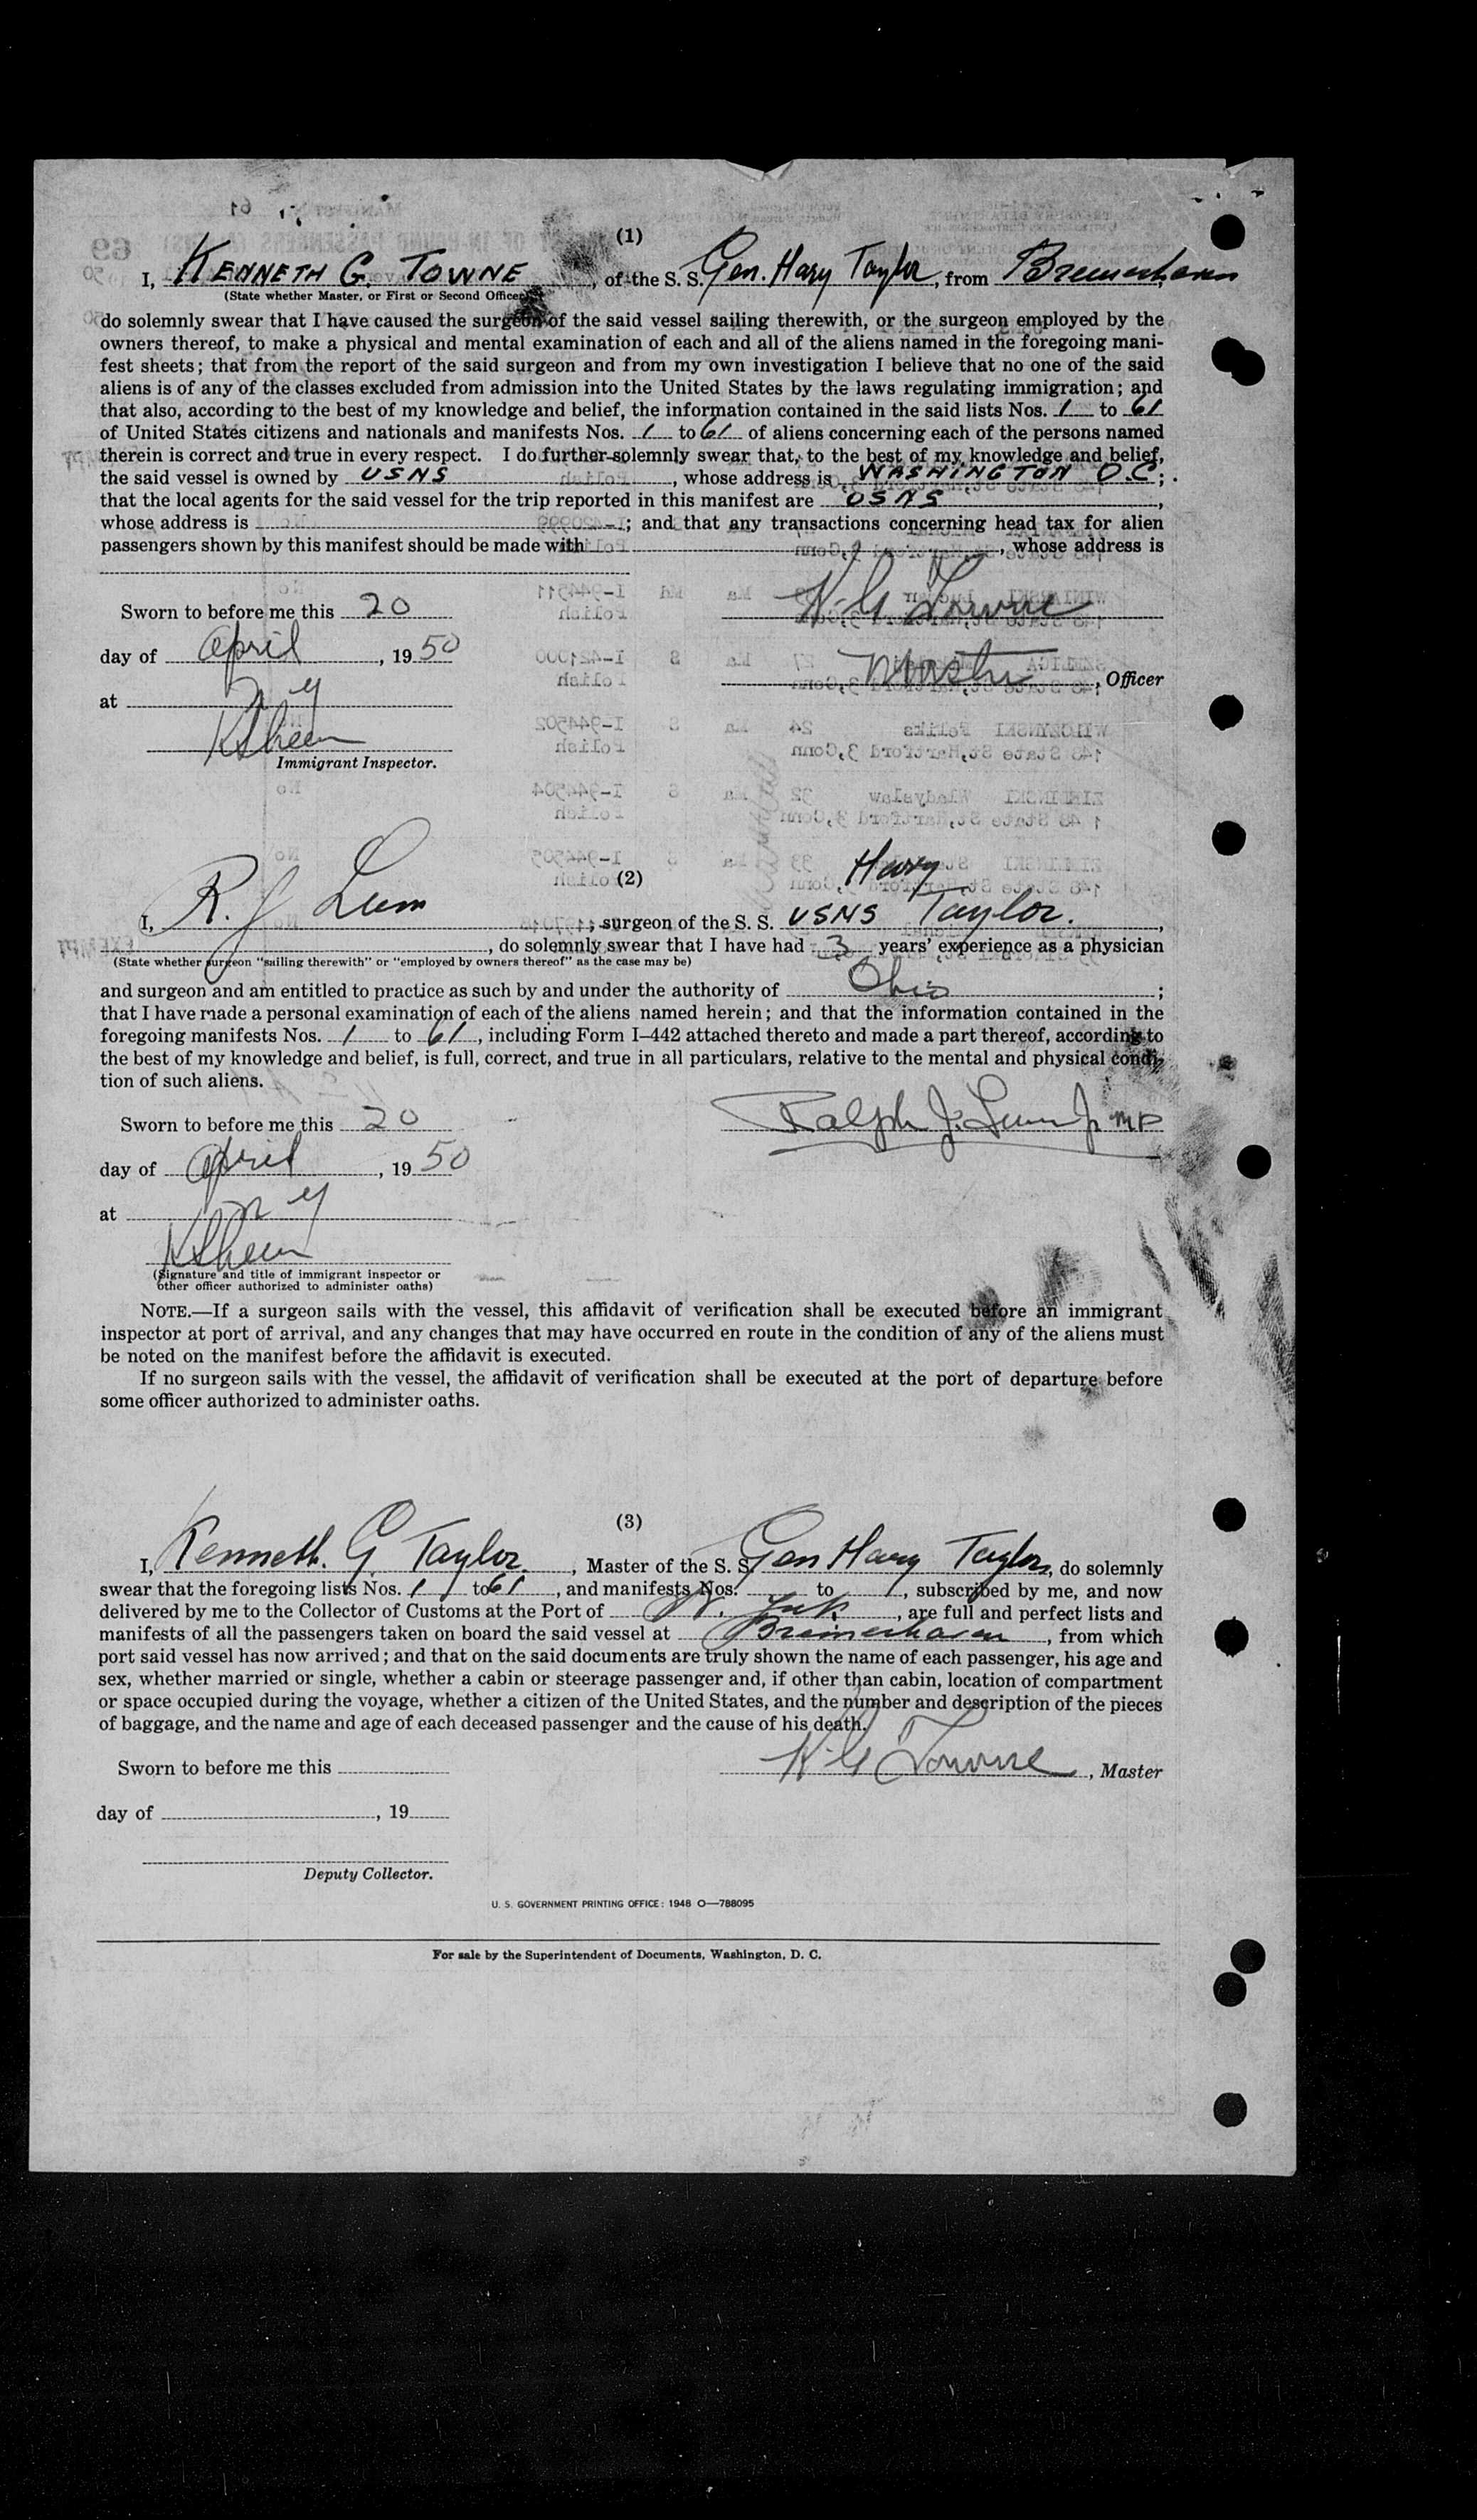 (1)
I, KENNETH G. TOWNE, of the S. S. Gen. Hary Taylor, from Bremerhaven
(State whether Master, or First or Second Officer)
do solemnly swear that I have caused the surgeon of the said vessel sailing therewith, or the surgeon employed by the
owners thereof, to make a physical and mental examination of each and all of the aliens named in the foregoing mani-
fest sheets; that from the report of the said surgeon and from my own investigation I believe that no one of the said
aliens is of any of the classes excluded from admission into the United States by the laws regulating immigration; and
that also, according to the best of my knowledge and belief, the information contained in the said lists Nos. 1 to 61
of United States citizens and nationals and manifests Nos. 1 to 61 of aliens concerning each of the persons named
therein is correct and true in every respect. I do further solemnly swear that, to the best of my knowledge and belief,
the said vessel is owned by USNS, whose address is WASHINGTON D.C.;
that the local agents for the said vessel for the trip reported in this manifest are USNS,
whose address is ; and that any transactions concerning head tax for alien
passengers shown by this manifest should be made with , whose address is
Sworn to before me this 20
K. G Towne
day of April, 1950
Master, Officer
at N Y
Immigrant Inspector.
(2)
Hary
I, R. J Lum, surgeon of the S. S. USNS Taylor.,
, do solemnly swear that I have had 3 years' experience as a physician
(State whether surgeon "sailing therewith" or "employed by owners thereof" as the case may be)
and surgeon and am entitled to practice as such by and under the authority of Ohio;
that I have made a personal examination of each of the aliens named herein; and that the information contained in the
foregoing manifests Nos. 1 to 61, including Form I-442 attached thereto and made a part thereof, according to
the best of my knowledge and belief, is full, correct, and true in all particulars, relative to the mental and physical condi-
tion of such aliens.
Sworn to before me this 20
Ralph J. Lum Jr MD
day of April, 1950
at N Y
(Signature and title of immigrant inspector or
other officer authorized to administer oaths)
NOTE.—If a surgeon sails with the vessel, this affidavit of verification shall be executed before an immigrant
inspector at port of arrival, and any changes that may have occurred en route in the condition of any of the aliens must
be noted on the manifest before the affidavit is executed.
If no surgeon sails with the vessel, the affidavit of verification shall be executed at the port of departure before
some officer authorized to administer oaths.
(3)
I, Kenneth. G Taylor., Master of the S. S. Gen Hary Taylor, do solemnly
swear that the foregoing lists Nos. 1 to 61, and manifests Nos. to , subscribed by me, and now
delivered by me to the Collector of Customs at the Port of N. York, are full and perfect lists and
manifests of all the passengers taken on board the said vessel at Bremerhaven, from which
port said vessel has now arrived; and that on the said documents are truly shown the name of each passenger, his age and
sex, whether married or single, whether a cabin or steerage passenger and, if other than cabin, location of compartment
or space occupied during the voyage, whether a citizen of the United States, and the number and description of the pieces
of baggage, and the name and age of each deceased passenger and the cause of his death.
Sworn to before me this
K. G Towne, Master
day of , 19
Deputy Collector.
U. S. GOVERNMENT PRINTING OFFICE: 1948 O—788095
For sale by the Superintendent of Documents, Washington, D. C.